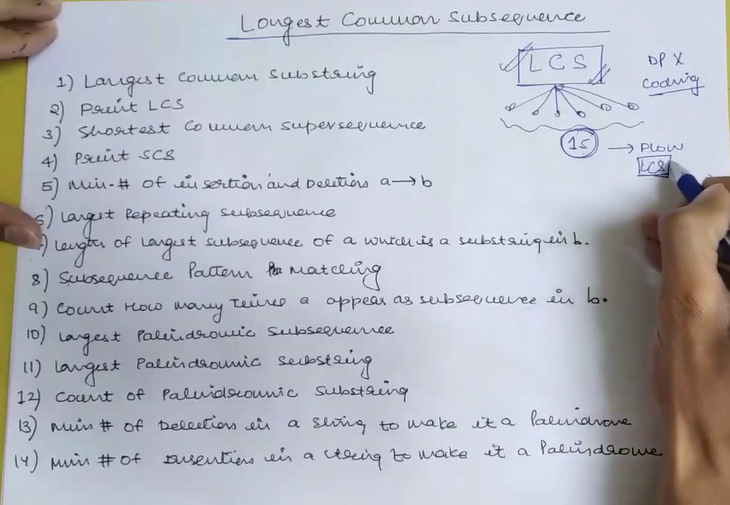 Longest Common Subsequence
LCS
DP X
Coding
15 → FLOW
LCS
1) Largest Common Substring
2) Print LCS
3) Shortest Common Supersequence
4) Print SCS
5) Min # of insertion and Deletions a → b
6) Largest Repeating Subsequence
) Length of Largest subsequence of a which is a substring in b.
8) Subsequence Pattern Matching
9) Count How many times a appear as subsequence in b.
10) Largest Palindromic Subsequence
11) Largest Palindromic Substring
12) Count of Palindromic Substring
13) Min # of Deletion in a string to make it a Palindrome
14) Min # of Insertion in a string to make it a Palindrome